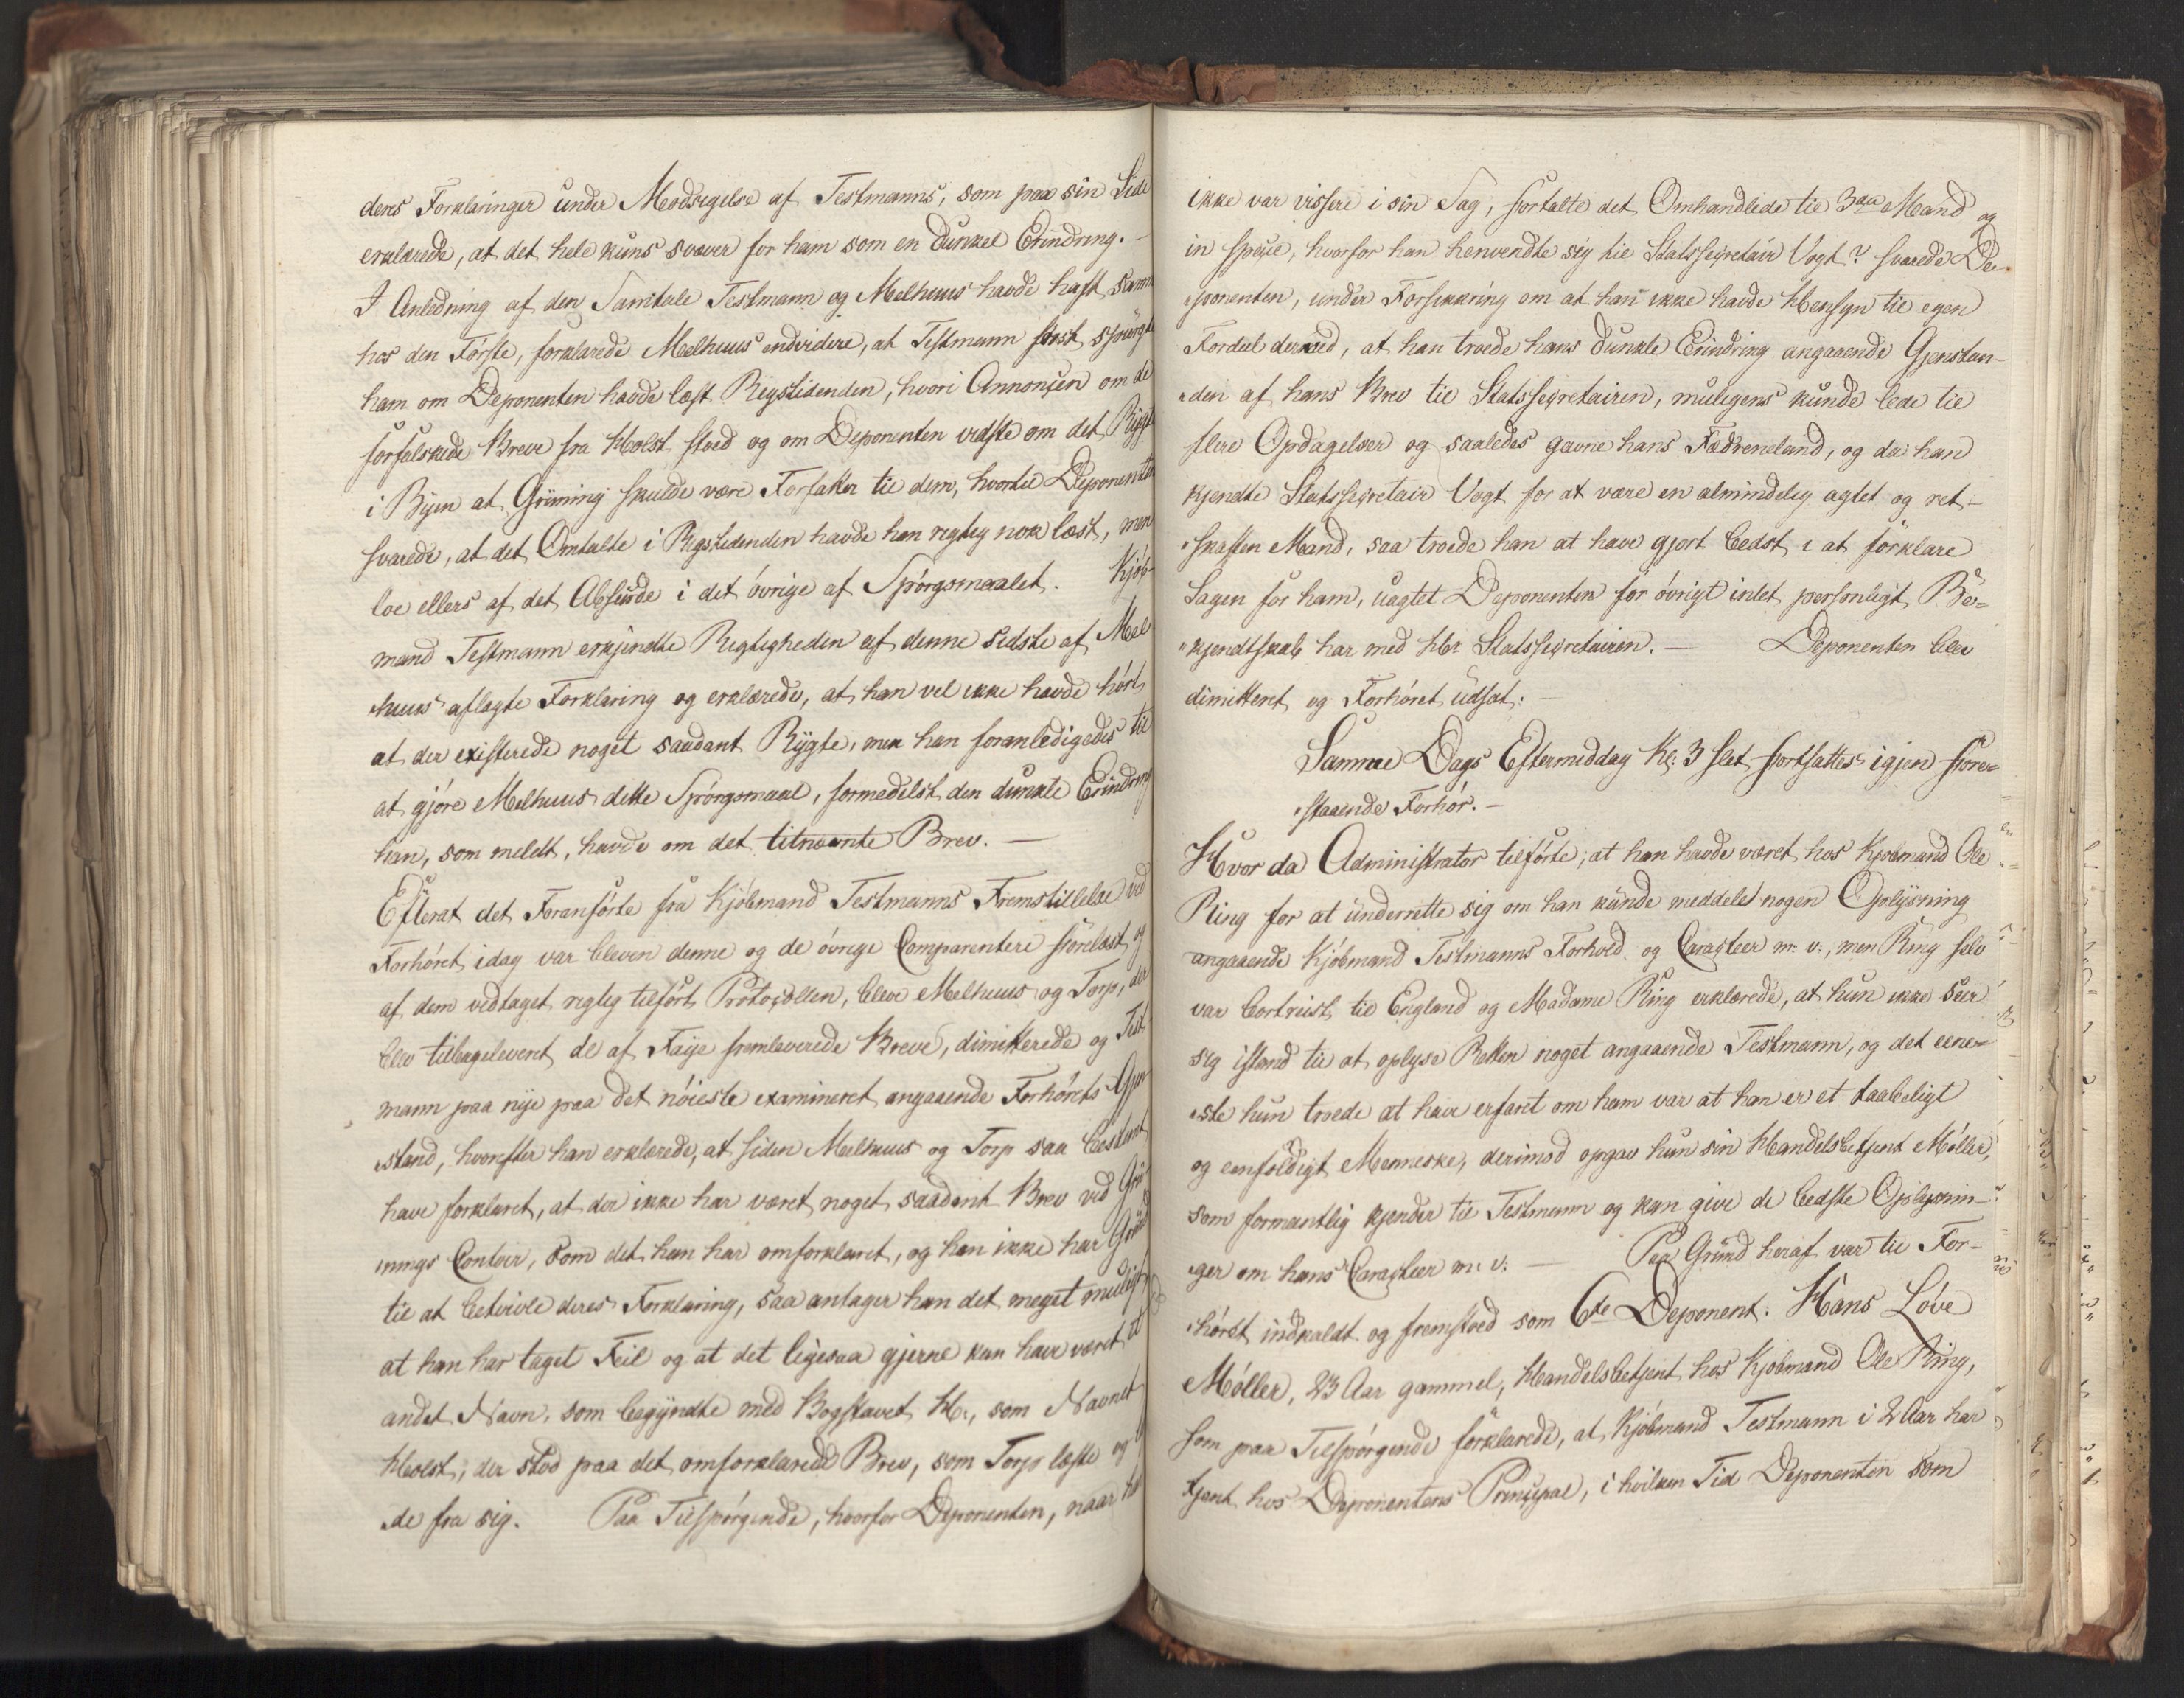 deres Forklaringer under Modsigelse af Testmanns, som paa sin Side
erklærede, at det hele kuns svæver for ham som en dunkel Erindring. –
I Anledning af den Samtale Testmann og Melhuus havde haft, samm
hos den Første, forklarede Melhuus endvidere, at Testmann først spurgt
ham om Deponenten havde læst Rigstidenden, hvori Annonçen om de
forfalskede Breve fra Holst stoed og om Deponenten vidste om det Rygte
i Byen at Grüning skulde være Forfatter til dem, hvortil Deponenten
svarede, at det Omtalte i Rigstidenden havde han rigtig nok læst, men
loe ellers af det Absurde i det øvrige af Spørgsmaalet. Kjøb-
mand Testmann erkjendte Rigtigheden af denne sidste af Mel
„huus aflagte Forklaring og erklærede, at han vel ikke havde hørt
at der existerede noget saadant Rygte, men han foranledigedes til
at gjøre Melhuus dette Spørgsmaal, formedelst den dunkle Erindring
han, som meldt, havde om det titnævnte Brev. –
Efterat det Foranførte fra Kjøbmand Testmanns Fremstillelse ved
Forhøret idag var bleven denne og de øvrige Comparentere forelæst og
af dem vedtaget rigtig tilført Protocollen, bleve Melhuus og Torp, der
blev tilbageleveret de af Faije fremleverede Breve, dimitterede og Test
mann paa nye paa det nøieste examineret angaaende Forhørets Gjen
„stand, hvorefter han erklærede, at siden Melhuus og Torp saa bestemt
have forklaret, at der ikke har været noget saadant Brev ved Grü
„nings Contoir, som det han har omforklaret, og han ikke har Grund
til at betvivle deres Forklaring, saa antager han det meget muligt
at han har taget Feil og at det ligesaa gjerne kan have været et
andet Navn, som begyndte med Bogstavet H:, som Navnet
Holst, der stod paa det omforklarede Brev, som Torp læste og
„de fra sig. Paa Tilspørgende, hvorfor Deponenten, naar han
ikke var vissere i sin Sag, fortalte det Omhandlede til 3die Mand og
in speçie, hvorfor han henvendte sig til Statssecretair Vogt? svarede De-
„ponenten, under Forsikkring om at han ikke havde Hensyn til egen
Fordeel dermed, at han troede hans dunkle Erindring angaaende Gjenstan-
„den af hans Brev til Statssecretairen, muligens kunde lede til
flere Opdagelser og saaledes gavne hans Fædreneland, og da han
kjendte Statssecretair Vogt for at være en almindelig agtet og ret-
„skaffen Mand, saa troede han at have gjort bedst i at forklare
Sagen for ham, uagtet Deponenten for øvrigt intet personligt Be-
„kjendtskab har med Hr. Statssecretairen. – Deponenten blev
dimitteret og Forhøret udsat. –
Samme Dags Eftermiddag Kl: 3 slet fortsattes igjen fore-
„staaende Forhør. –
Hvor da Administrator tilførte, at han havde været hos Kjøbmand Ole
Ring for at underrette sig om han kunde meddele nogen Oplysning
angaaende Kjøbmand Testmanns Forhold og Caracteer m: v:, men Ring selv
var bortreist til England og Madame Ring erklærede, at hun ikke seer
sig istand til at oplyse Retten noget angaaende Testmann, og det eene-
„ste hun troede at have erfaret om ham var at han er et taabeligt
og eenfoldigt Menneske, derimod opgav hun sin Handelsbetjent Møller,
som formentlig kjender til Testmann og kan give de bedste Oplysnin-
„ger om hans Caracteer m: v: – Paa Grund heraf var til For-
„høret indkaldt og fremstoed som 6te Deponent. Hans Løve
Møller, 23 Aar gammel, Handelsbetjent hos Kjøbmand Ole Ring,
som paa Tilspørgende forklarede, at Kjøbmand Testmann i 2 Aar har
tjent hos Deponentens Principal, i hvilken Tid Deponenten som